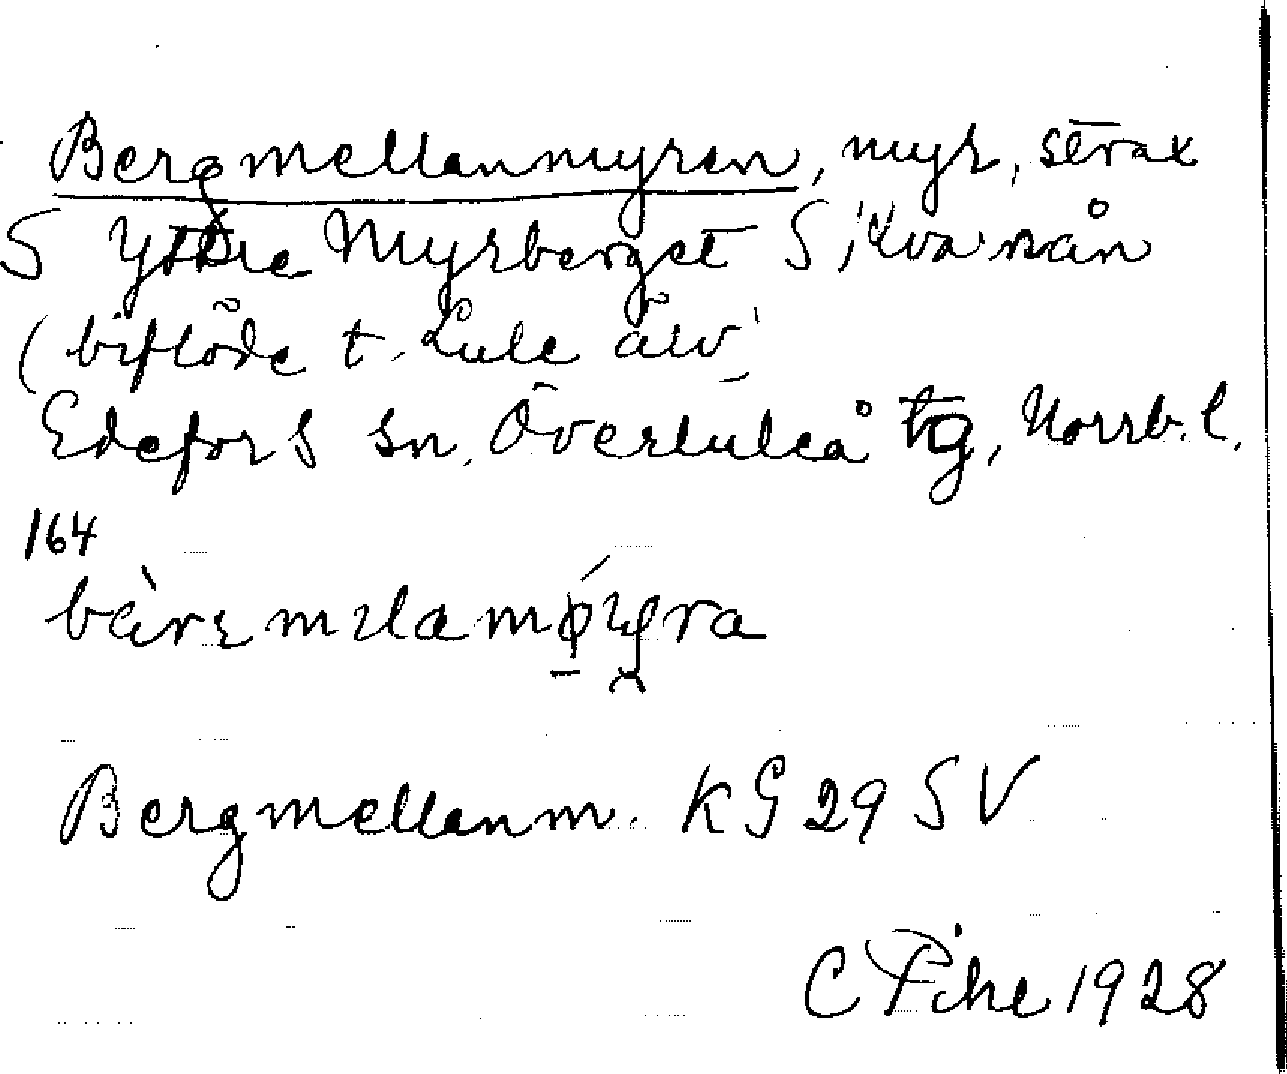 Bergmellanmyren, myr, strax
S Yttre Myrberget S
(biflöde t. Lule älv)
Edefors sn, Överluleå tg, Norrb. l.
164
Bergmellanm. KG 29 SV
C Pihl 1928